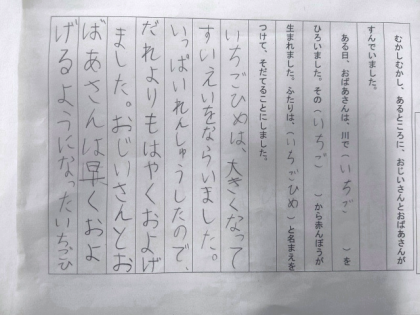 むかしむかし、あるところに、おじいさんとおばあさんが
すんでいました。
ある日、おばあさんは、川で(いちご)を
ひろいました。その(いちご)から赤んぼうが
生まれました。ふたりは、(いちごひめ)と名まえを
つけて、そだてることにしました。
いちごひめは、大きくなって
すいえいをならいました。
いっぱいれんしゅうしたので、
だれよりもはやくおよげ
ました。おじいさんとお
ばあさんは早くおよ
げるようになったいちごひ